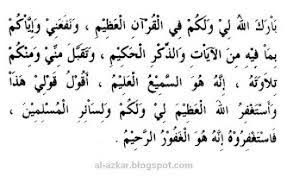 بَارَكَ اللهُ لِيْ وَلَكُمْ فِي الْقُرْآنِ الْعَظِيْمِ ، وَنَفَعَنِيْ وَإِيَّاكُمْ
بِمَا فِيْهِ مِنَ الْآيَاتِ وَالذِّكْرِ الْحَكِيْمِ ، وَتَقَبَّلَ مِنِّيْ وَمِنْكُمْ
تِلَاوَتَهُ ، إِنَّهُ هُوَ السَّمِيْعُ الْعَلِيْمُ . أَقُوْلُ قَوْلِيْ هٰذَا
وَأَسْتَغْفِرُ اللهَ الْعَظِيْمَ لِيْ وَلَكُمْ وَلِسَائِرِ الْمُسْلِمِيْنَ ،
فَاسْتَغْفِرُوْهُ إِنَّهُ هُوَ الْغَفُوْرُ الرَّحِيْمُ .
al-azkar.blogspot.com